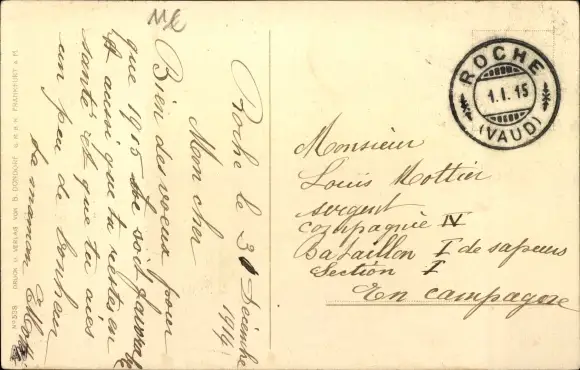 Roche le 31 Décembre
1914
Mon cher
Bien des voeux pour
que 1915 te soit favorable
et aussi que tu restes en
santé et que tu aies
un peu de bonheur
ta maman
ROCHE
1.I.15
(VAUD)
Monsieur
Louis Mottier
sergent
Compagnie IV
Bataillon I de sapeurs
Section I
En campagne
No 538 DRUCK U. VERLAG VON B. DONDORF G.M.B.H. FRANKFURT A/M.